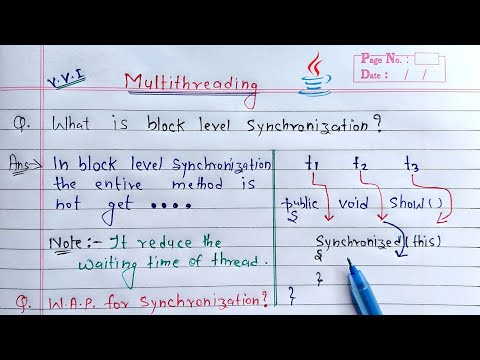 V.V.I
Multithreading
Java
Page No. :
Date : / /
Q. What is block level synchronization?
Ans→ In block level synchronization
the entire method is
not get ....
Note :- It reduce the
waiting time of thread.
t1 t2 t3
public void show()
{
Synchronized(this)
{
}
}
Q. W.A.P. for synchronization?